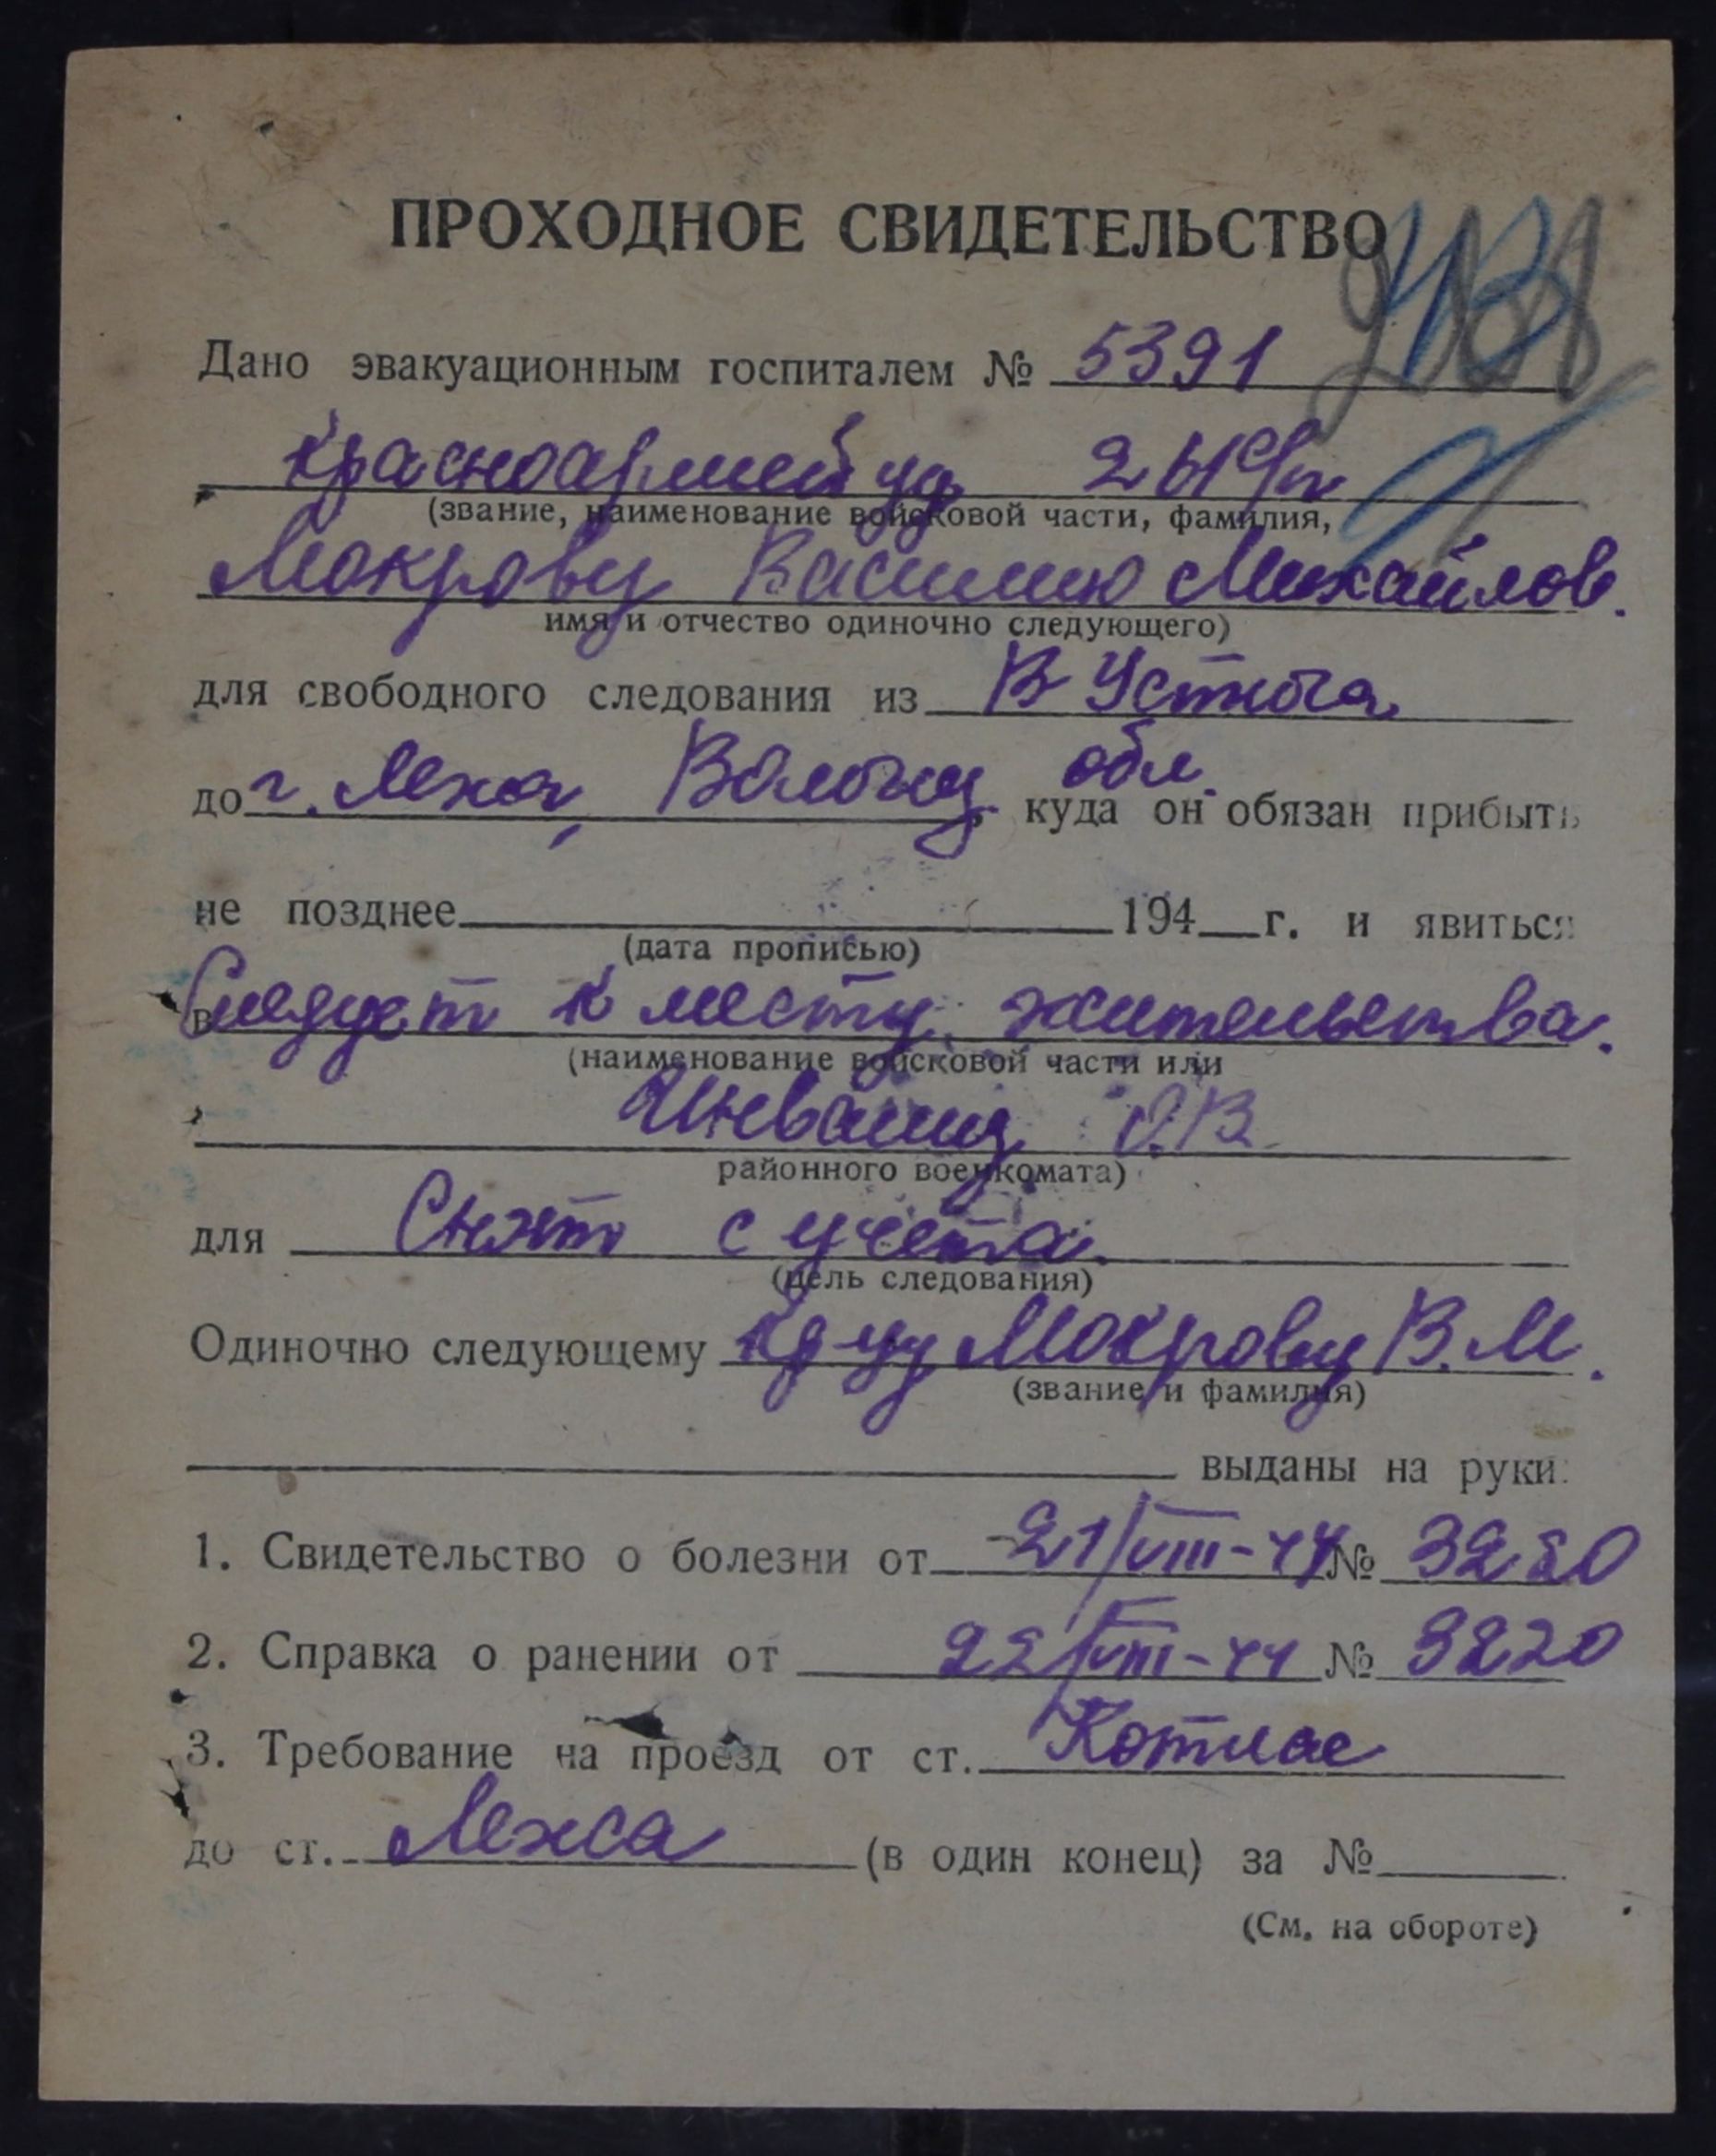 ПРОХОДНОЕ СВИДЕТЕЛЬСТВО
Дано эвакуационным госпиталем № 5391
красноармейцу
(звание, наименование войсковой части, фамилия,
Мокрову Василию Михайлов.
имя и отчество одиночно следующего)
для свободного следования из В Устюга
до г. Лежа, Вологод. обл. куда он обязан прибыть
не позднее 194 г. и явиться
в Следует к месту жительства.
(наименование войсковой части или
Инвалид О.В.
районного военкомата)
для Снят с учета.
(цель следования)
Одиночно следующему кр-цу Мокрову В. М.
(звание и фамилия)
выданы на руки:
1. Свидетельство о болезни от 21/VIII-44 №
2. Справка о ранении от 22/VIII-44 № 3220
3. Требование на проезд от ст. Котлас
до ст. Лежа (в один конец) за №
(См. на обороте)